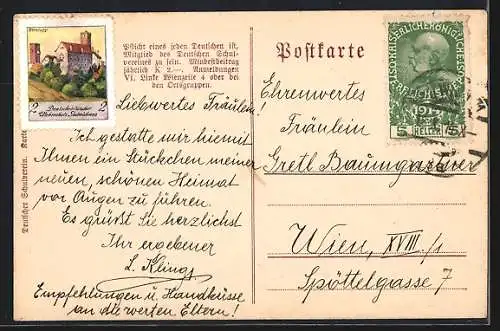 Pflicht eines jeden Deutschen ist,
Mitglied des Deutschen Schul-
vereines zu sein. Mindestbeitrag
jährlich K 2.—. Anmeldungen
VI. Linke Wienzeile 4 oder bei
den Ortsgruppen.
Postkarte
2 2
Deutscher Schulverein. Karte
Liebwertes Fräulein!
Ich gestatte mir hiemit
Ihnen ein Stückchen meiner
neuen, schönen Heimat
vor Augen zu führen.
Es grüßt Sie herzlichst
Ihr ergebener
L. Kling
Empfehlungen u. Handküsse
an die werten Eltern!
5 HELLER 5
Ehrenwertes
Fräulein
Gretl Baumgartner
Wien, XVIII./1
Spöttelgasse 7